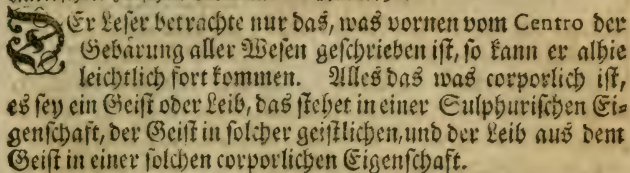 DEr Leser betrachte nur das, was vornen vom Centro der
Gebärung aller Wesen geschrieben ist, so kann er alhie
leichtlich fort kommen. Alles das was corporlich ist,
es sey ein Geist oder Leib, das stehet in einer Sulphurischen Ei=
genschaft, der Geist in solcher geistlichen, und der Leib aus dem
Geist in einer solchen corporlichen Eigenschaft.